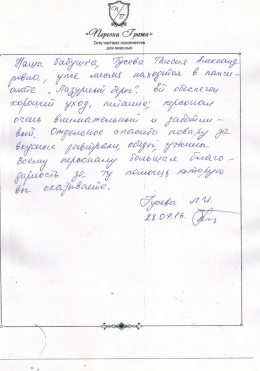 «Перспектива»
Сеть элитных пансионатов
для пожилых
Наша бабушка, Гусева Таисия Александ
ровна, уже месяц находится в панси-
онате "Лазурный берег". Ей обеспечен
хороший уход, питание; персонал
очень внимательный и заботли-
вый. Отдельное спасибо повару за
вкусные завтраки, обеды, ужины.
Всему персоналу большая благо-
дарность за ту помощь, которую
вы оказываете.
Гусева Л.И.
28.09.16.